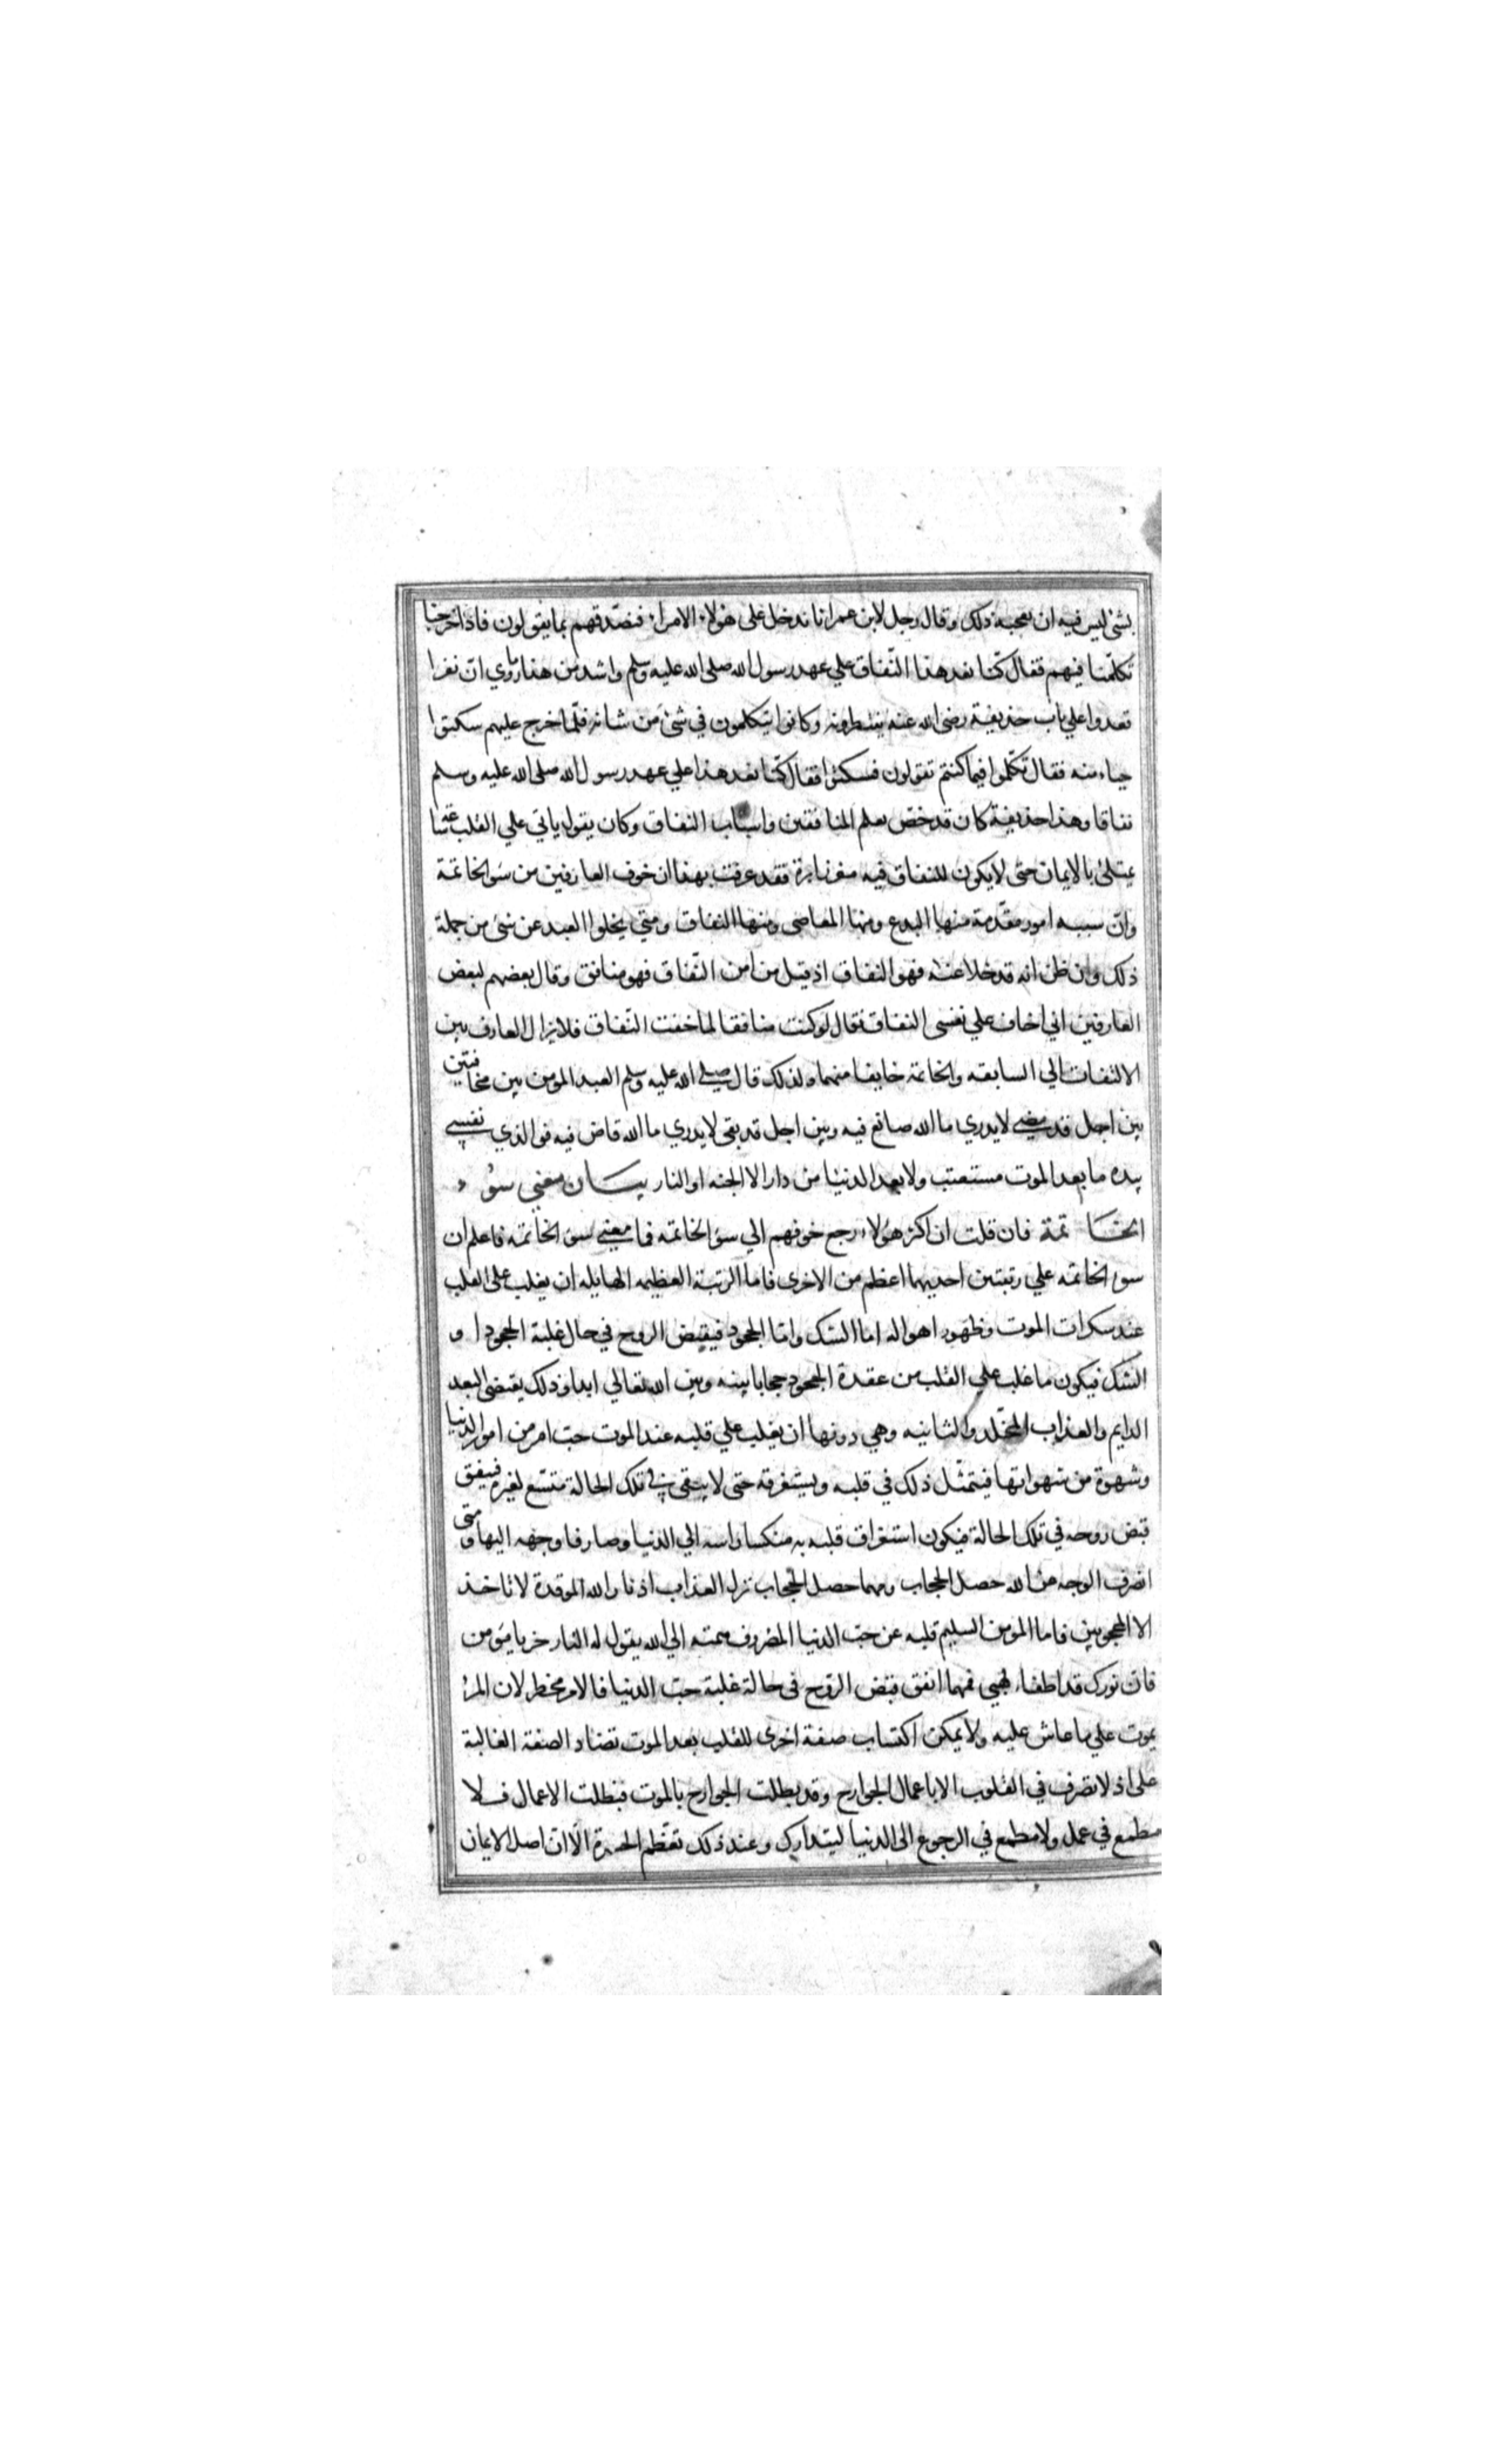 بشئ ليس فيه ان يعجبه ذلك وقال رجل لابن عمر انا ندخل على هؤلاء الامراء فنصدقهم بما يقولون فاذا خرجنا
تكلمنا فيهم فقال كنا نعد هذا النفاق علي عهد رسول الله صلى الله عليه وسلم واشد من هذا ما روي ان نفرا
قعدوا علي باب حذيفة رضى الله عنه ينتظرونه وكانوا يتكلمون في شئ من شانه فلما خرج عليهم سكتوا
حياء منه فقال تكلموا فيما كنتم تقولون فسكتوا فقال كنا نعد هذا علي عهد رسول الله صلى الله عليه وسلم
نفاقا وهذا حذيفة كان قد خص بعلم المنافقين واسباب النفاق وكان يقول ياتي علي القلب
يمتلئ بالايمان حتى لا يكون للنفاق فيه مغرز ابرة فقد عرفت بهذا ان خوف العارفين من سو الخاتمة
وان سببه امور مقدمة منها البدع ومنها المعاصى ومنها النفاق ومتي يخلوا العبد عن شئ من جملة
ذلك وان ظن انه قد خلا عنه فهو النفاق اذ قيل من امن النفاق فهو منافق وقال بعضهم لبعض
العارفين اني اخاف علي نفسى النفاق فقال لو كنت منافقا لما خفت النفاق فلا يزال العارف بين
الالتفات الي السابقه والخاتمة خايفا منهما ولذلك قال صلى الله عليه وسلم العبد المومن بين مخافتين
بين اجل قد مضى لا يدري ما الله صانع فيه وبين اجل قد بقى لا يدري ما الله قاض فيه فوالذي نفسي
بيده ما بعد الموت مستعتب ولا بعد الدنيا من دار الا الجنه او النار بيان معني سوء
الخاتمة فان قلت ان اكثر هؤلاء رجع خوفهم الي سو الخاتمه فما معنى سو الخاتمه فاعلم ان
سو الخاتمه علي رتبتين احديهما اعظم من الاخرى فاما الرتبة العظيمه الهايله ان يغلب على القلب
عند سكرات الموت وظهور اهواله اما الشك واما الجحود فيقبض الروح في حال غلبة الجحود او
الشك فيكون ما غلب علي القلب من عقدة الجحود حجابا بينه وبين الله تعالي ابدا وذلك يقتضى البعد
الدايم والعذاب المخلد والثانيه وهي دونها ان يغلب علي قلبه عند الموت حب امر من امور الدنيا
وشهوة من شهواتها فيتمثل ذلك في قلبه ويستغرقه حتى لا يبقى في تلك الحالة متسع لغيره فيتفق
قبض روحه في تلك الحالة فيكون استغراق قلبه به منكسا راسه الي الدنيا وصارفا وجهه اليها ومتى
انصرف الوجه من الله حصل الحجاب ومهما حصل الحجاب نزل العذاب اذ نار الله الموقدة لا تاخذ
الا المحجوبين فاما المومن السليم قلبه عن حب الدنيا المصروف همته الي الله يقول له النار جز يا مؤمن
فان نورك قد اطفاء لهبي فمهما اتفق قبض الروح فى حالة غلبة حب الدنيا فالامر مخطر لان المرء
يموت علي ما عاش عليه ولا يمكن اكتساب صفة اخرى للقلب بعد الموت تضاد الصفة الغالبة
على اذ لا تصرف في القلوب الا باعمال الجوارح وقد بطلت الجوارح بالموت فبطلت الاعمال فلا
مطمع في عمل ولا مطمع في الرجوع الى الدنيا ليتدارك وعند ذلك تعظم الحسرة الا ان اصل الايمان